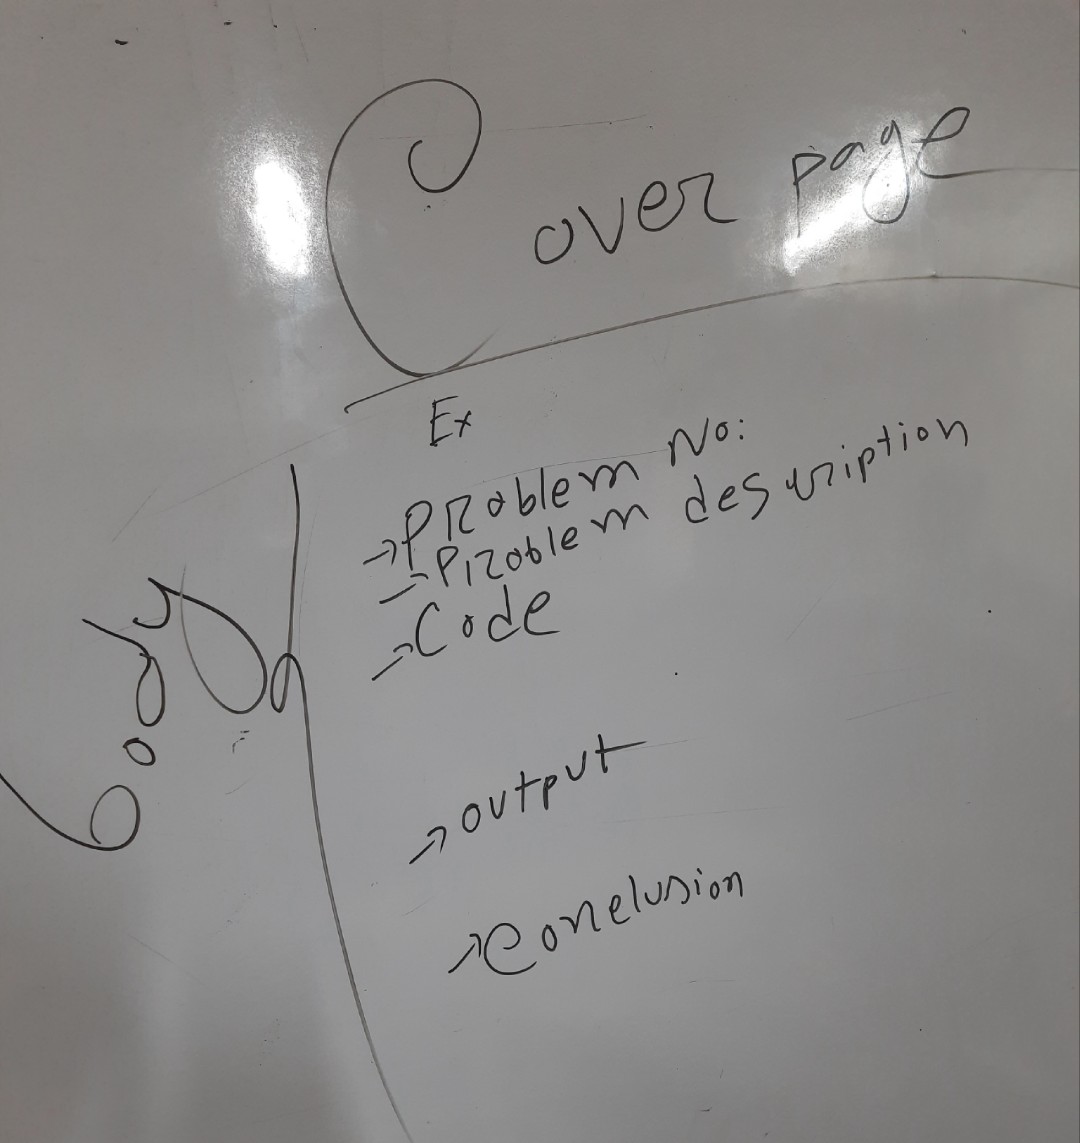 Cover page
Ex
→ Problem No:
→ Problem description
→ Code
Body
→ output
→ Conclusion